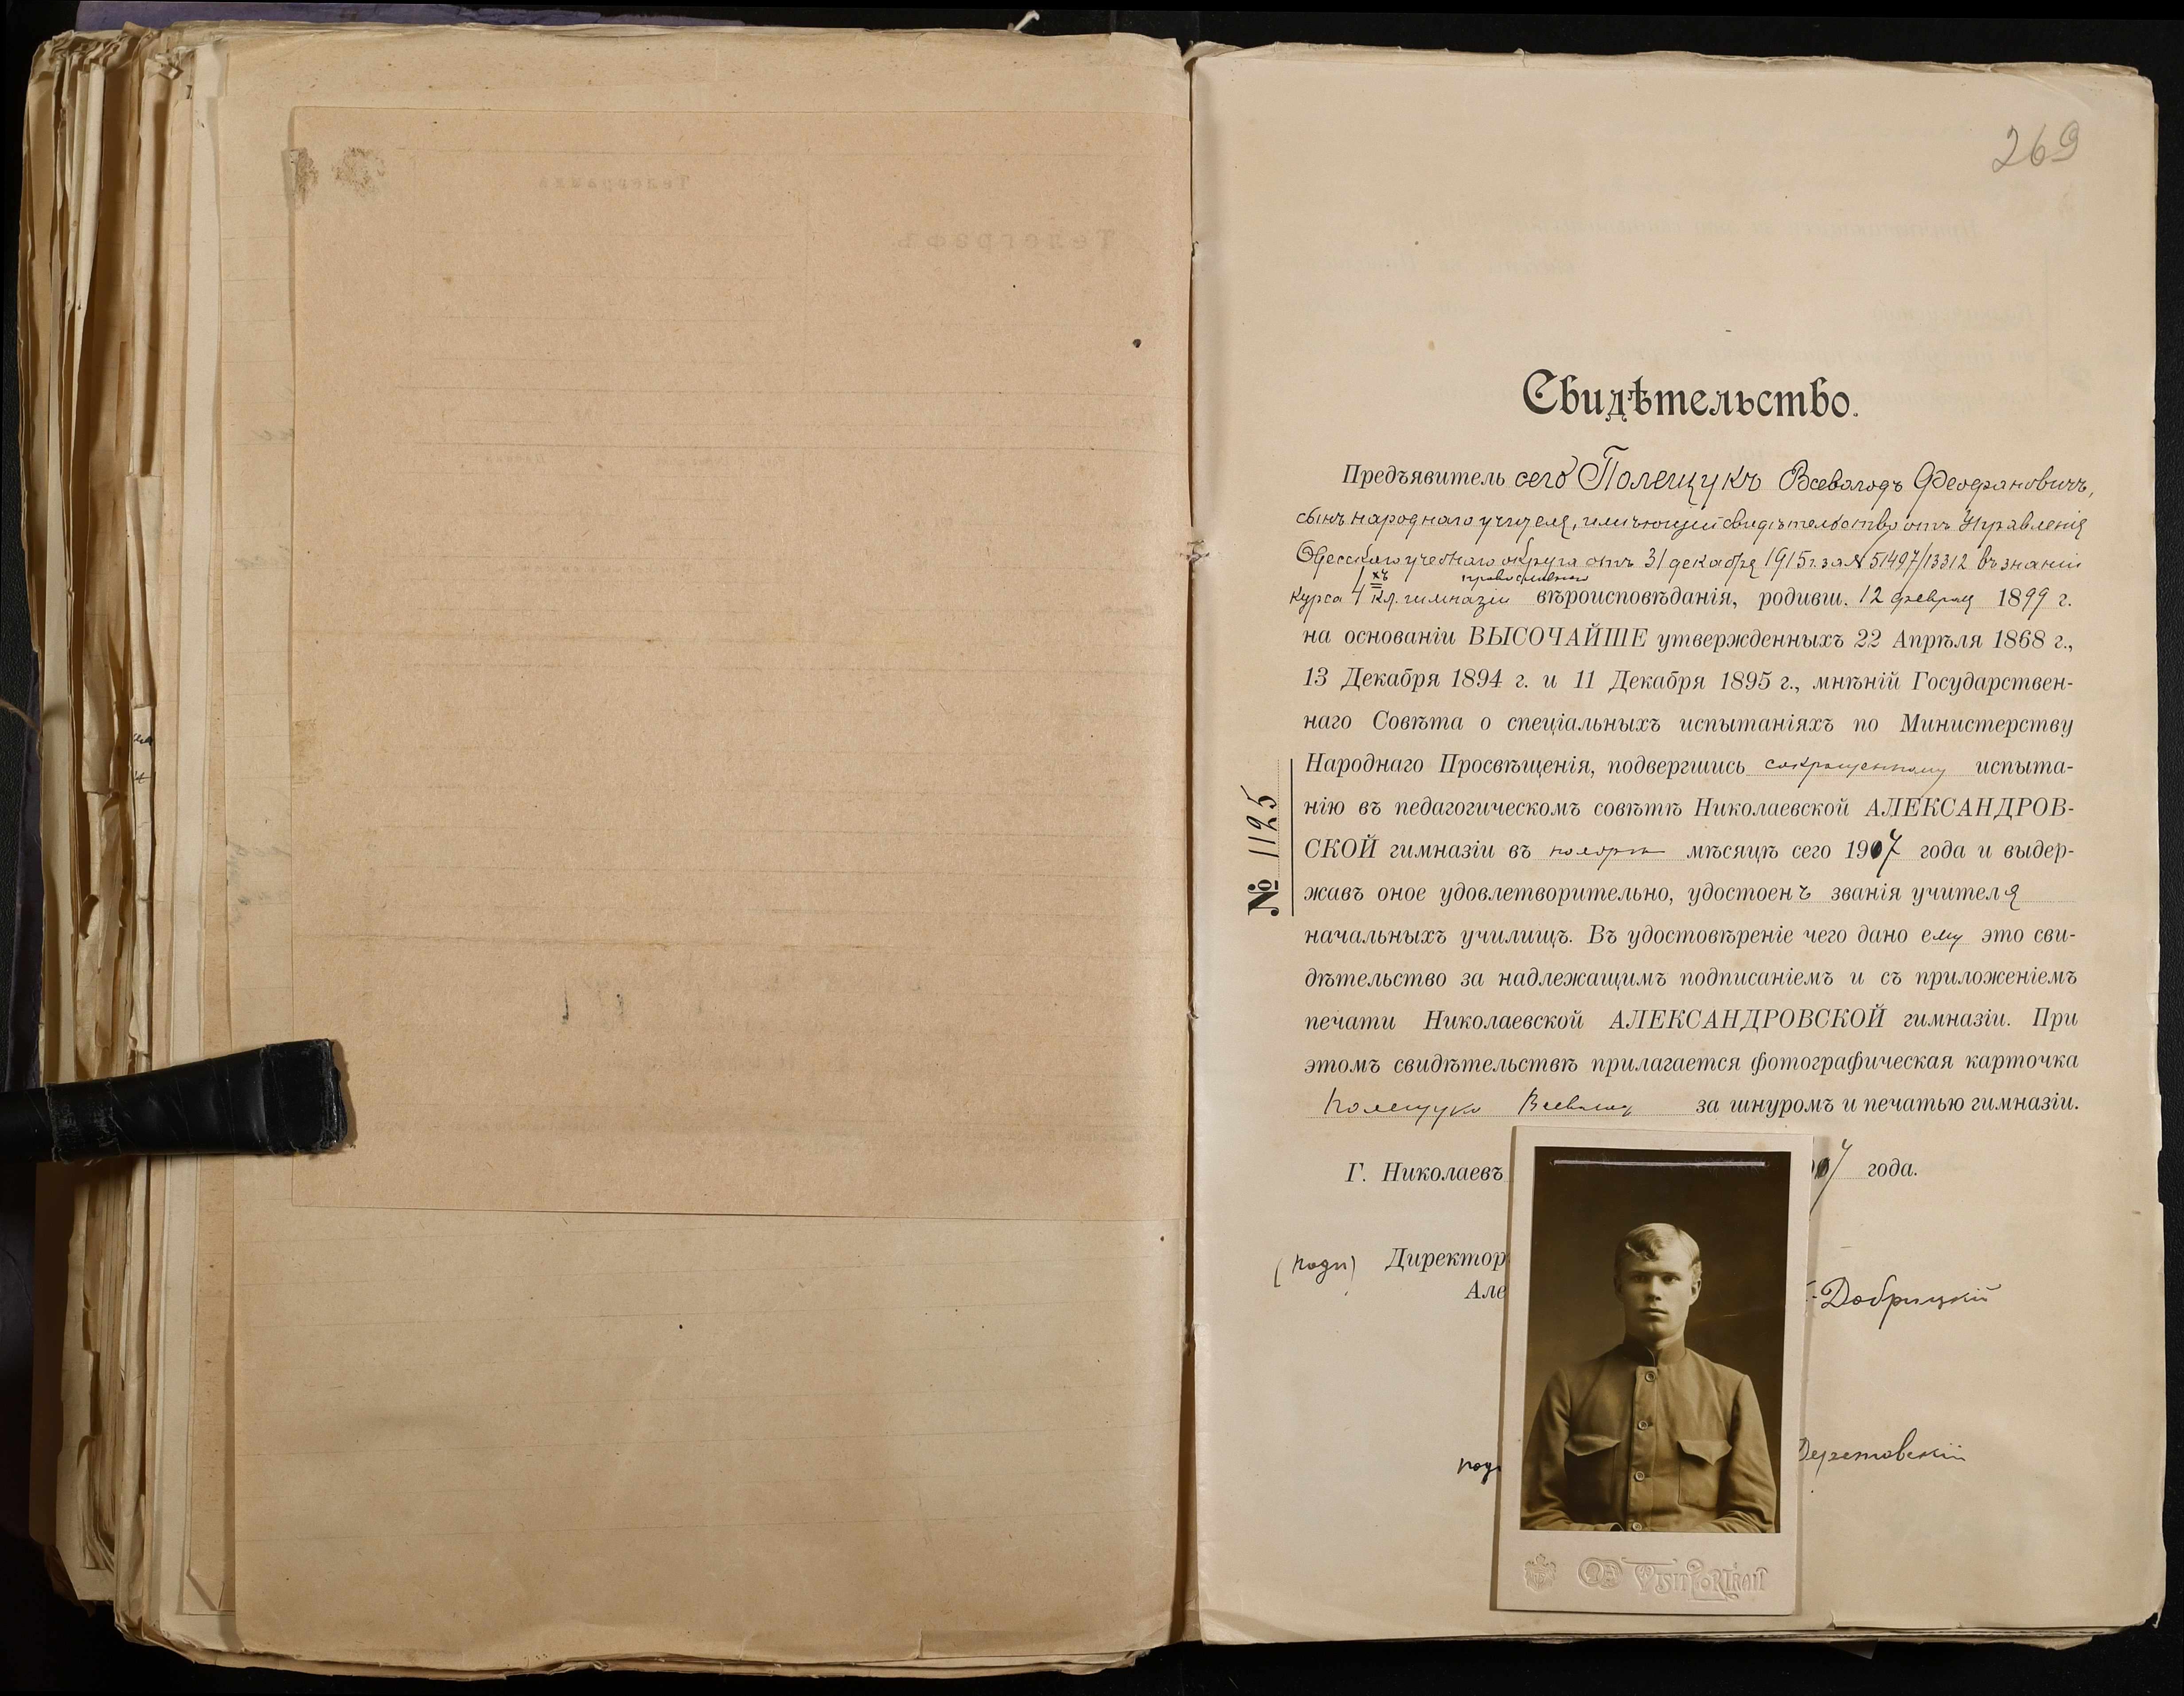 269
Свидѣтельство.
Предъявитель сего Полещукъ Всеволодъ Феофановичъ,
сынъ народнаго учителя, имѣющій свидѣтельство отъ Управленія
Одесскаго учебнаго округа отъ 31 декабря 1915 г. за № 51497/13312 въ знаніи
православнаго
курса 4хъ кл. гимназіи вѣроисповѣданія, родивш. 12 февраля 1899 г.
на основаніи ВЫСОЧАЙШЕ утвержденныхъ 22 Апрѣля 1868 г.,
13 Декабря 1894 г. и 11 Декабря 1895 г., мнѣній Государствен-
наго Совѣта о спеціальныхъ испытаніяхъ по Министерству
Народнаго Просвѣщенія, подвергшись сокращенному испыта-
нію въ педагогическомъ совѣтѣ Николаевской АЛЕКСАНДРОВ-
СКОЙ гимназіи въ ноябрѣ мѣсяцѣ сего 1917 года и выдер-
жавъ оное удовлетворительно, удостоенъ званія учителя
начальныхъ училищъ. Въ удостовѣреніе чего дано ему это сви-
дѣтельство за надлежащимъ подписаніемъ и съ приложеніемъ
печати Николаевской АЛЕКСАНДРОВСКОЙ гимназіи. При
этомъ свидѣтельствѣ прилагается фотографическая карточка
Полещука Всеволод за шнуромъ и печатью гимназіи.
№ 1125
Г. Николаевъ 17 года.
(подп) Директор
Але -Добрицкій
подп
VISIT PORTRAIT
Телеграмма
Телеграфъ